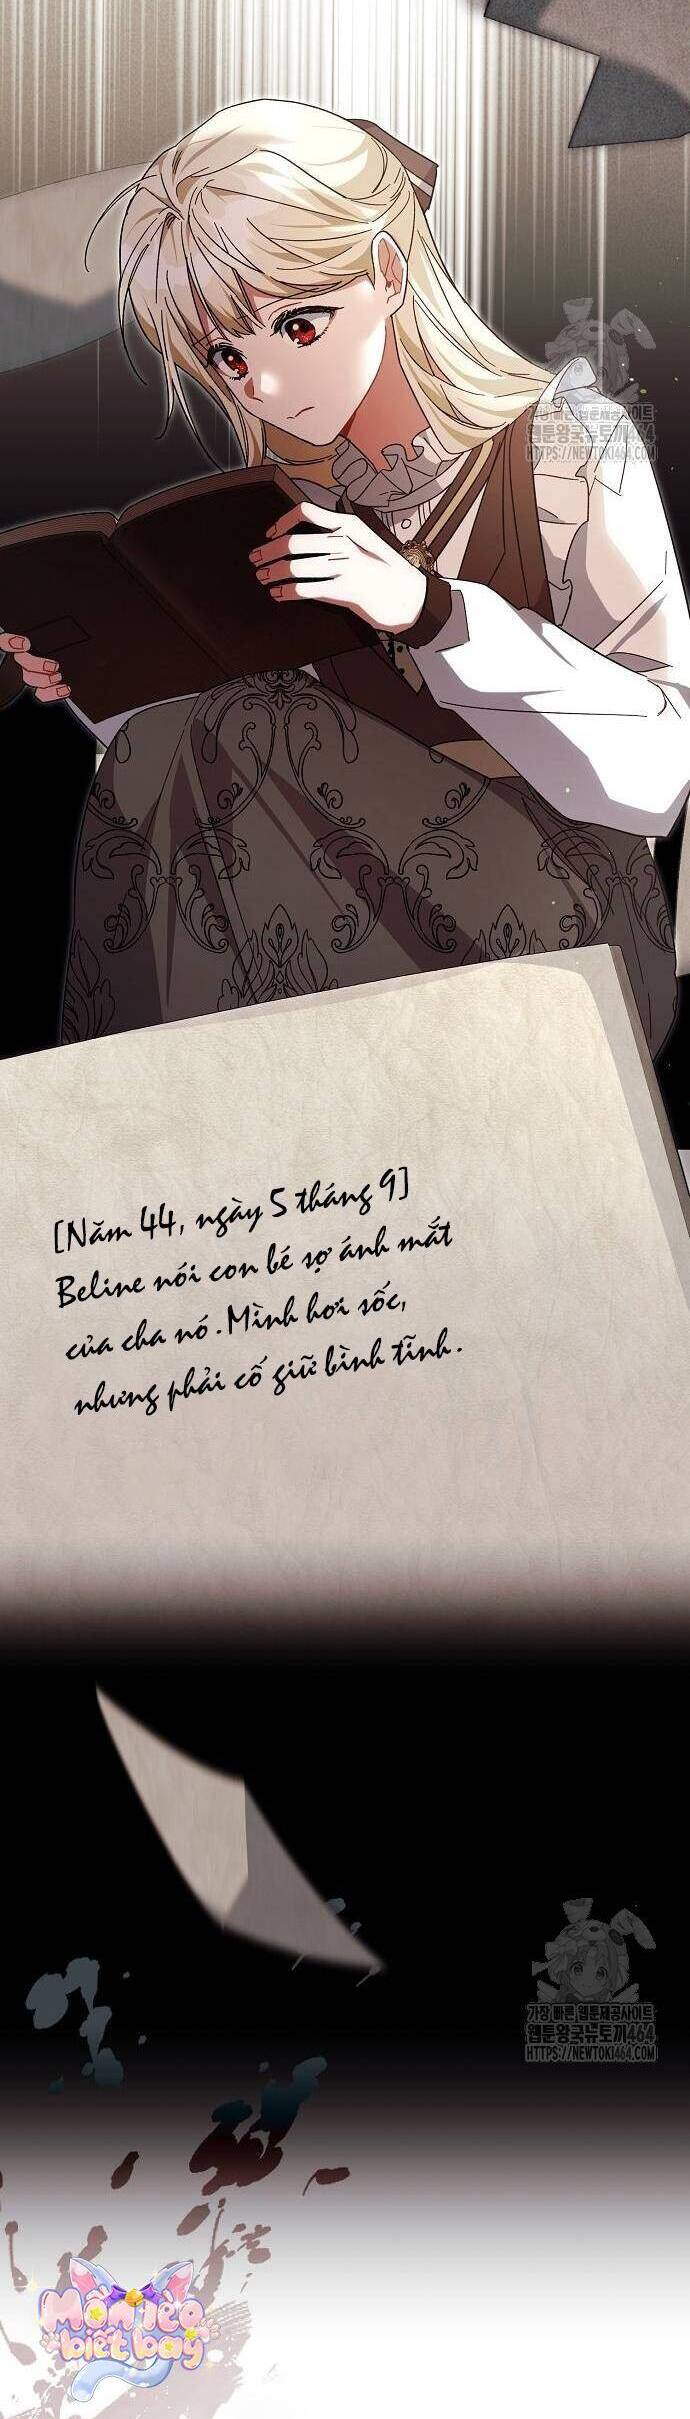 가장 빠른 웹툰제공사이트
웹툰왕국뉴토끼464
HTTPS://NEWTOKI464.COM
[Năm 44, ngày 5 tháng 9]
Beline nói con bé sợ ánh mắt
của cha nó. Mình hơi sốc,
nhưng phải cố giữ bình tĩnh.
가장 빠른 웹툰제공사이트
웹툰왕국뉴토끼464
HTTPS://NEWTOKI464.COM
Mồn lèo
biết bay